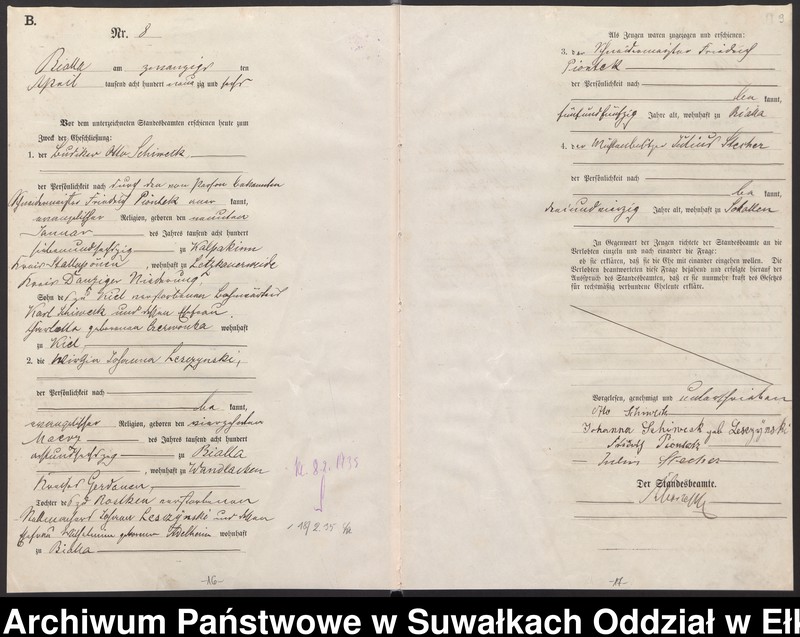 B.
Nr. 8
Bialla am zwanzigsten
April tausend acht hundert neunzig und sechs
Vor dem unterzeichneten Standesbeamten erschienen heute zum
Zweck der Eheschließung:
1. der Otto Schiweck,
der Persönlichkeit nach durch den von Person bekannten
Friedrich Piontek kannt,
evangelischer Religion, geboren den neunten
Januar des Jahres tausend acht hundert
siebenundsechzig zu
Kreis Stallupönen, wohnhaft zu Letzkauerweide
Kreis Danziger Niederung,
Sohn des zu Kiel verstorbenen
Karl Schiweck und dessen Ehefrau
Charlotte geborenen Czerwonka wohnhaft
zu Kiel
2. die Wirthin Johanna Lesczynski,
der Persönlichkeit nach
be kannt,
evangelischer Religion, geboren den vierzehnten
Maerz des Jahres tausend acht hundert
achtundsechzig zu Bialla
, wohnhaft zu Wandlacken
Kreises Gerdauen,
Tochter des zu Rostken verstorbenen
Johann Lesczynski und dessen
Ehefrau Wilhelmine geborenen wohnhaft
zu Bialla
-16-
Als Zeugen waren zugezogen und erschienen:
3. der Schneidermeister Friedrich
Piontek
der Persönlichkeit nach
be kannt,
fünfundfünfzig Jahre alt, wohnhaft zu Bialla
4. der Julius Stecher
der Persönlichkeit nach
be kannt,
dreiundvierzig Jahre alt, wohnhaft zu Sokollen
In Gegenwart der Zeugen richtete der Standesbeamte an die
Verlobten einzeln und nach einander die Frage:
ob sie erklären, daß sie die Ehe mit einander eingehen wollen. Die
Verlobten beantworteten diese Frage bejahend und erfolgte hierauf der
Ausspruch des Standesbeamten, daß er sie nunmehr kraft des Gesetzes
für rechtmäßig verbundene Eheleute erkläre.
Vorgelesen, genehmigt und unterschrieben
Otto Schiweck
Johanna Schiweck geb Lesczynski
Friedrich Piontek
Julius Stecher
Der Standesbeamte.
-17-
Archiwum Państwowe w Suwałkach Oddział w Ełk